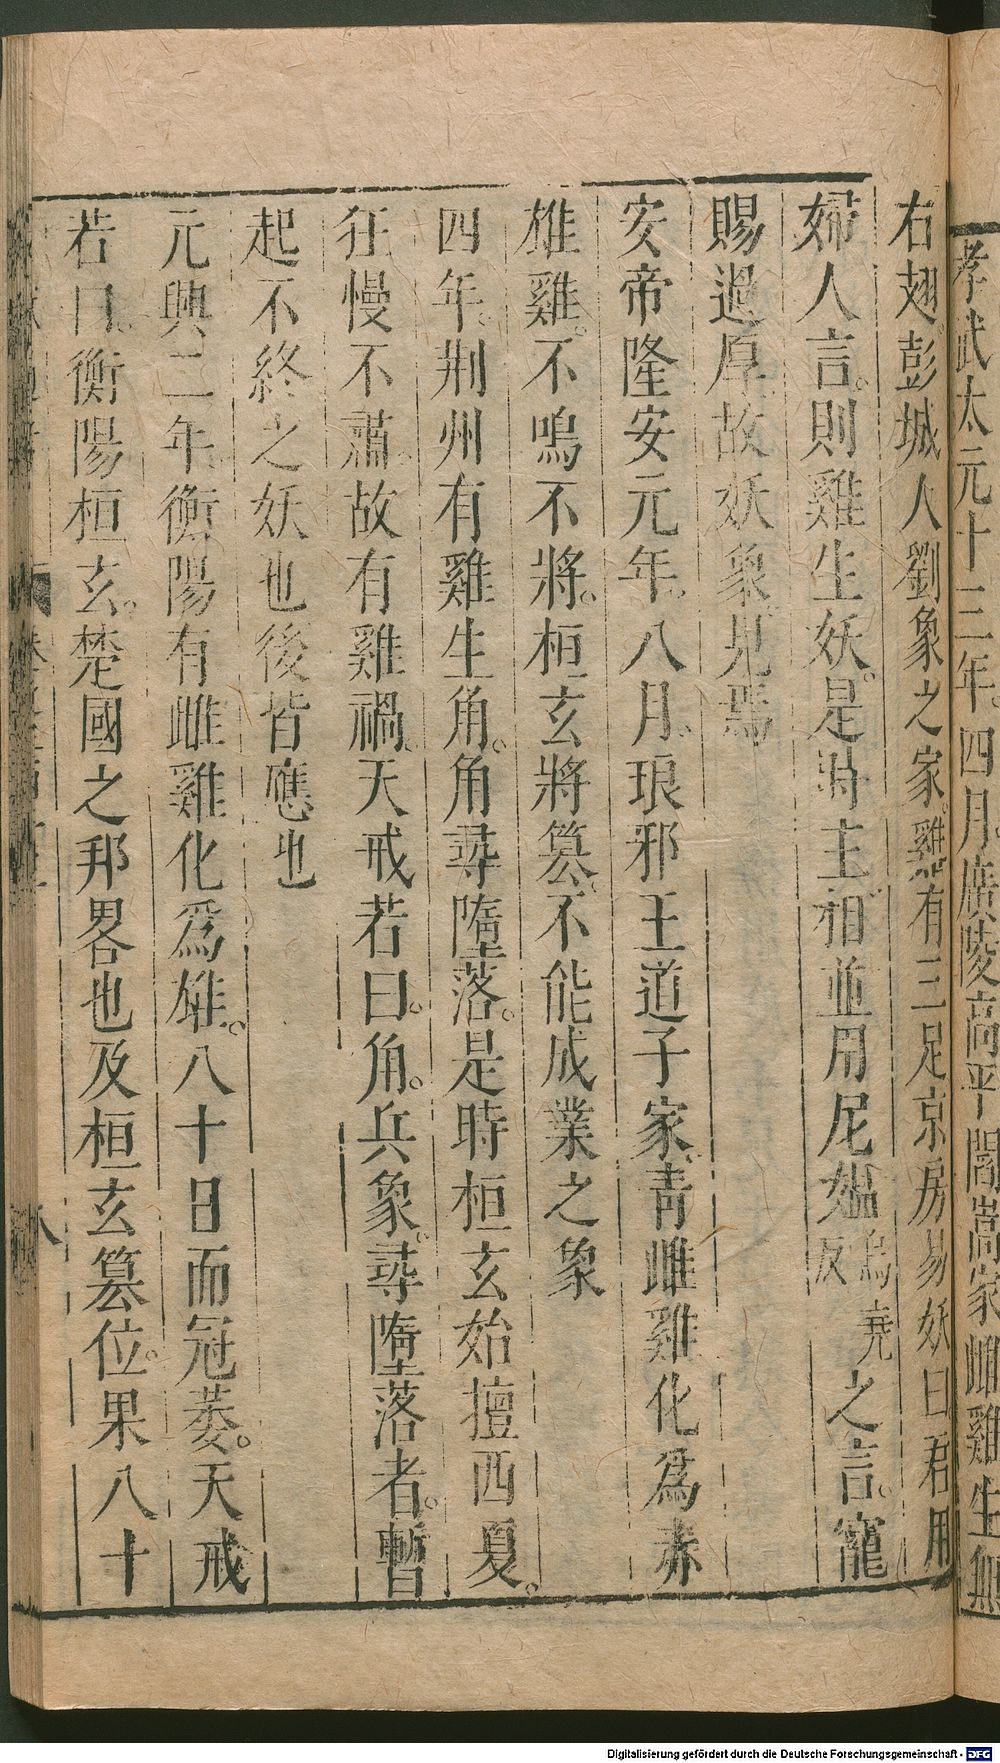 孝武太元十三年。四月。廣陵高平閻嵩家雌雞生無
右翅。彭城人劉象之家。雞有三足京房易妖曰君用
婦人言。則雞生妖。是時主相並用尼媼烏堯反之言。寵
賜過厚故妖象見焉
安帝隆安元年。八月。琅邪王道子家靑雌雞化爲赤
雄雞。不鳴不將。桓玄將篡。不能成業之象
四年。荆州有雞生角。角尋墮落。是時桓玄始擅西夏。
狂慢不肅。故有雞禍。天戒若曰。角。兵象。尋墮落者。暫
起不終之妖也後皆應也
元興二年。衡陽有雌雞化爲雄。八十日而冠萎。天戒
若曰。衡陽桓玄。楚國之邦畧也及桓玄篡位。果八十
八
Digitalisierung gefördert durch die Deutsche Forschungsgemeinschaft - DFG